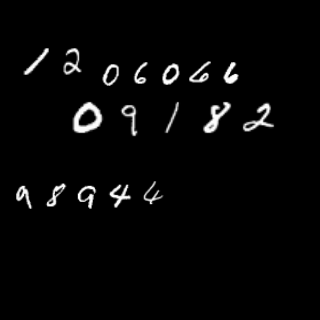 1206066
09182
98944